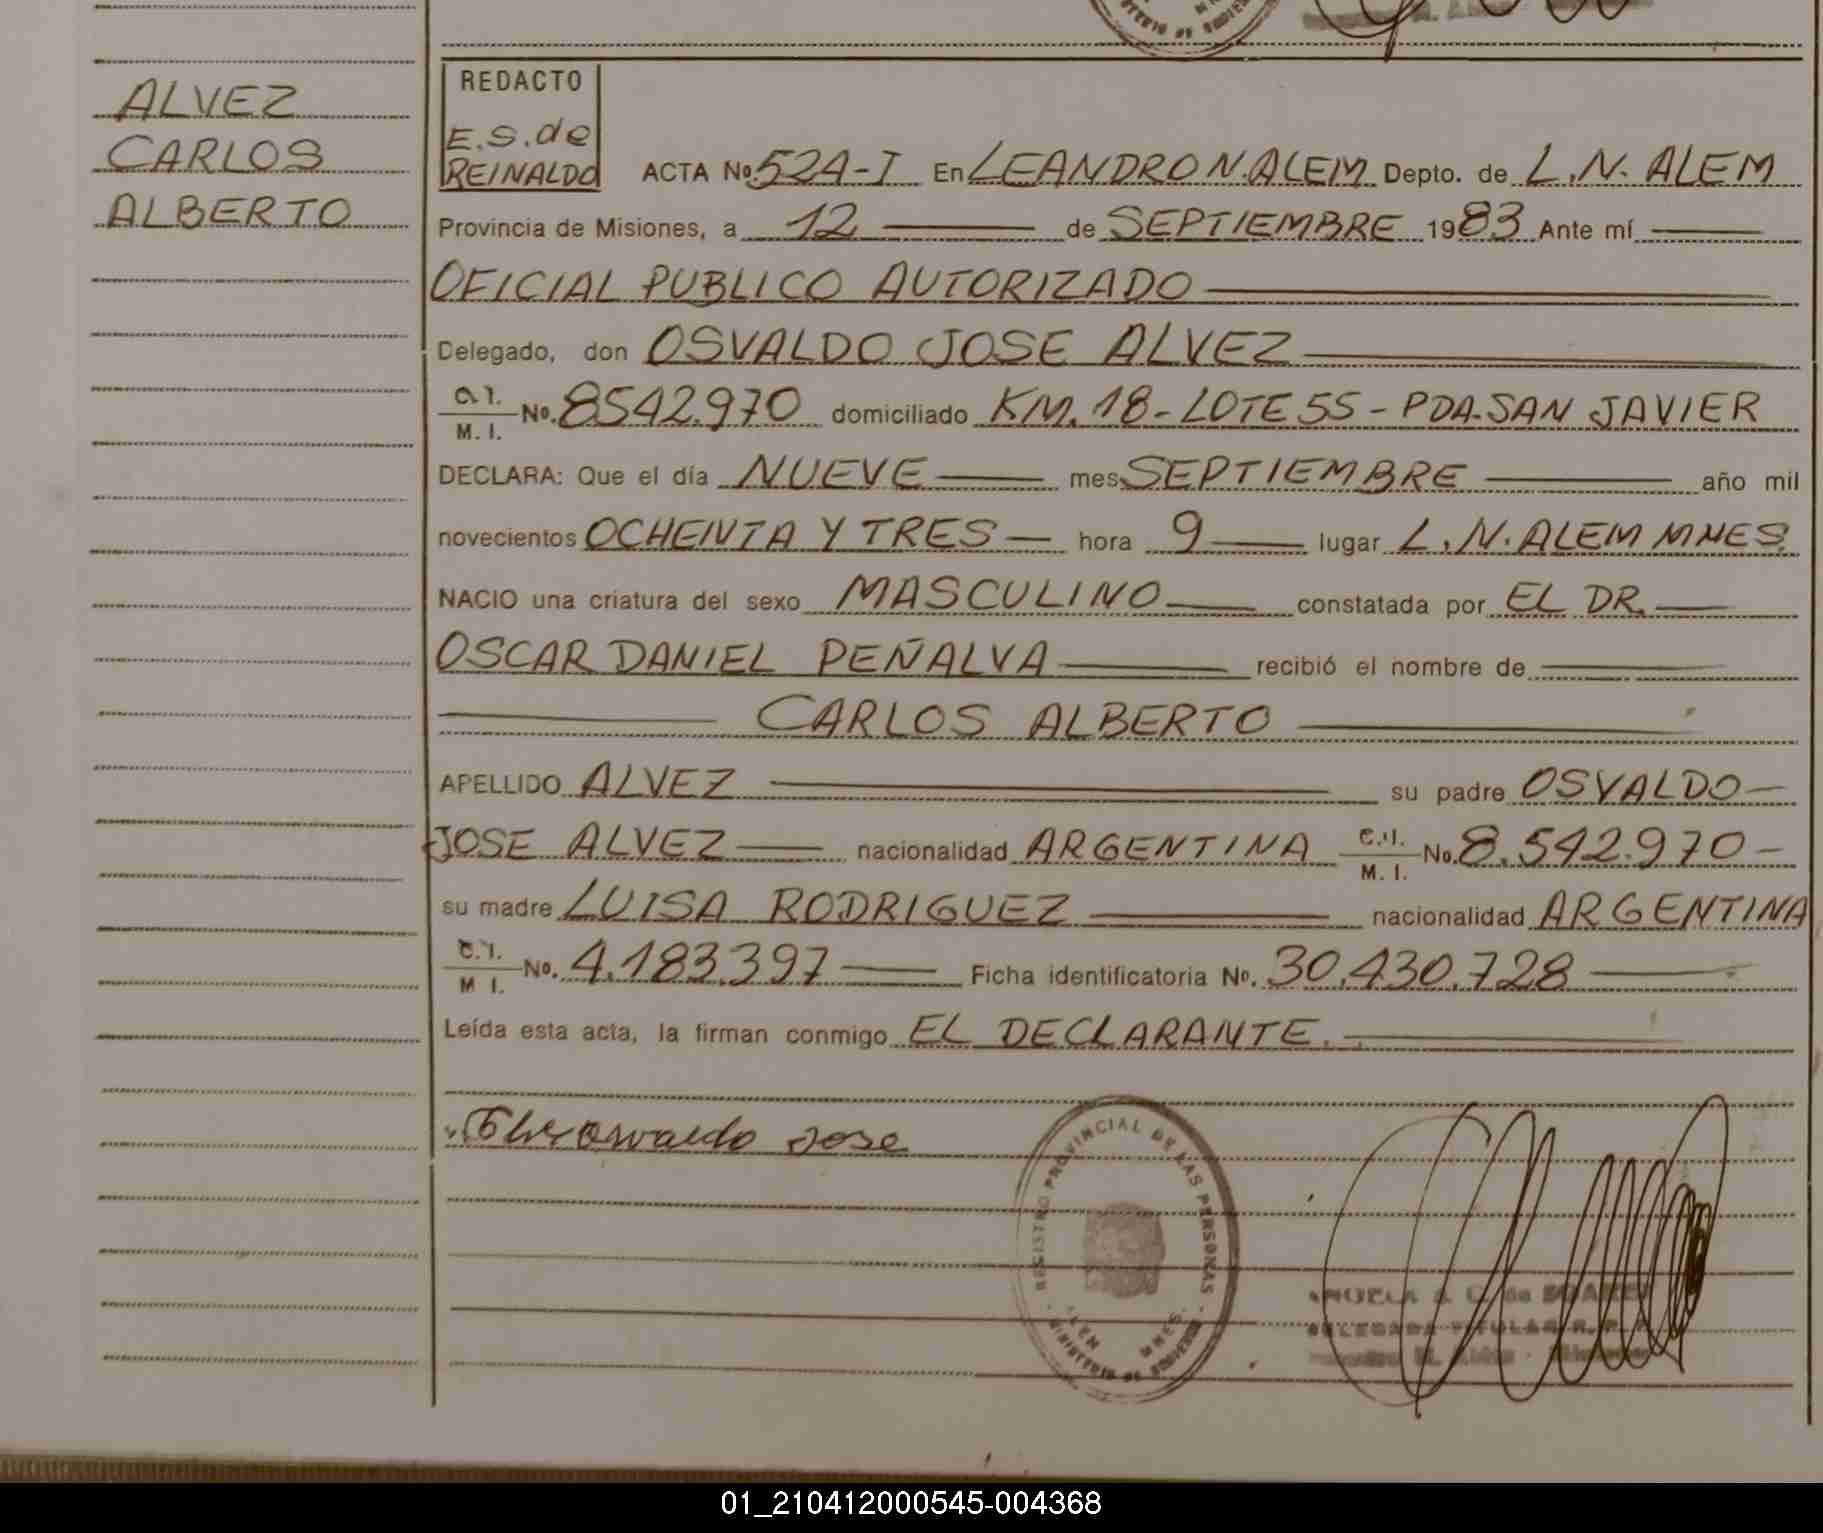 ALVEZ
CARLOS
ALBERTO
REDACTO
E.S. de
REINALDO
ACTA No. 524-I En LEANDRO N. ALEM Depto. de L.N. ALEM
Provincia de Misiones, a 12 de SEPTIEMBRE 1983 Ante mí
OFICIAL PUBLICO AUTORIZADO
Delegado, don OSVALDO JOSE ALVEZ
C.I. M.I. No. 8542.970 domiciliado KM. 18 - LOTE 55 - PDA. SAN JAVIER
DECLARA: Que el día NUEVE mes SEPTIEMBRE año mil
novecientos OCHENTA Y TRES hora 9 lugar L.N. ALEM MNES.
NACIO una criatura del sexo MASCULINO constatada por EL DR.
OSCAR DANIEL PEÑALVA recibió el nombre de
CARLOS ALBERTO
APELLIDO ALVEZ su padre OSVALDO
JOSE ALVEZ nacionalidad ARGENTINA C.I. M.I. No. 8.542.970
su madre LUISA RODRIGUEZ nacionalidad ARGENTINA
C.I. M I. No. 4.183.397 Ficha identificatoria No. 30.430.728
Leída esta acta, la firman conmigo EL DECLARANTE.
Osvaldo Jose
REGISTRO PROVINCIAL DE LAS PERSONAS
ALEM MNES.
MINISTERIO DE GOBIERNO
01_210412000545-004368